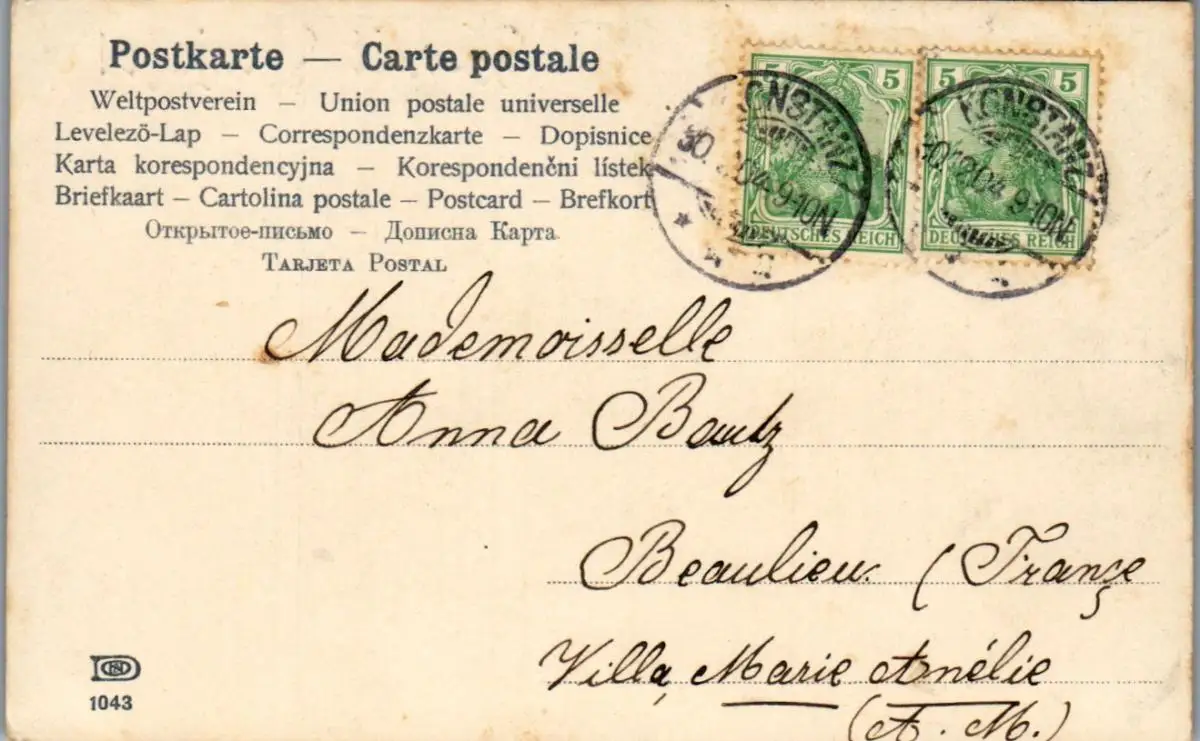 Postkarte — Carte postale
Weltpostverein – Union postale universelle
Levelező-Lap – Correspondenzkarte – Dopisnice
Karta korespondencyjna – Korespondenčni lístek
Briefkaart – Cartolina postale – Postcard – Brefkort
Открытое-письмо – Дописна Карта
TARJETA POSTAL
5 5
DEUTSCHES REICH
KONSTANZ
9-10N
5 5
DEUTSCHES REICH
KONSTANZ
9-10N
Mademoisselle
Anna Bautz
Beaulieu (France
Villa Marie Amélie
(A. M.)
1043